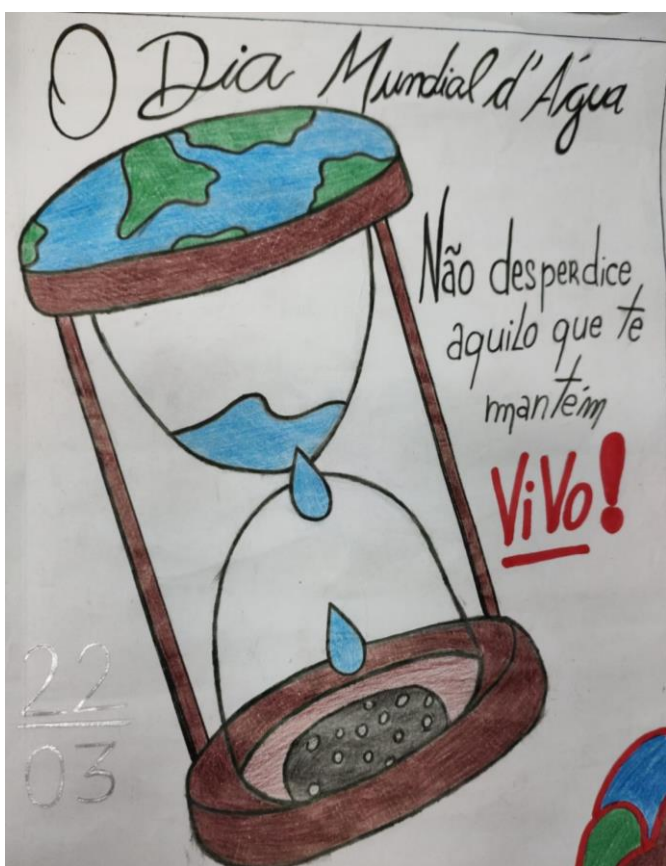 O Dia Mundial d'Água
Não desperdice
aquilo que te
mantém
ViVo!
22
03